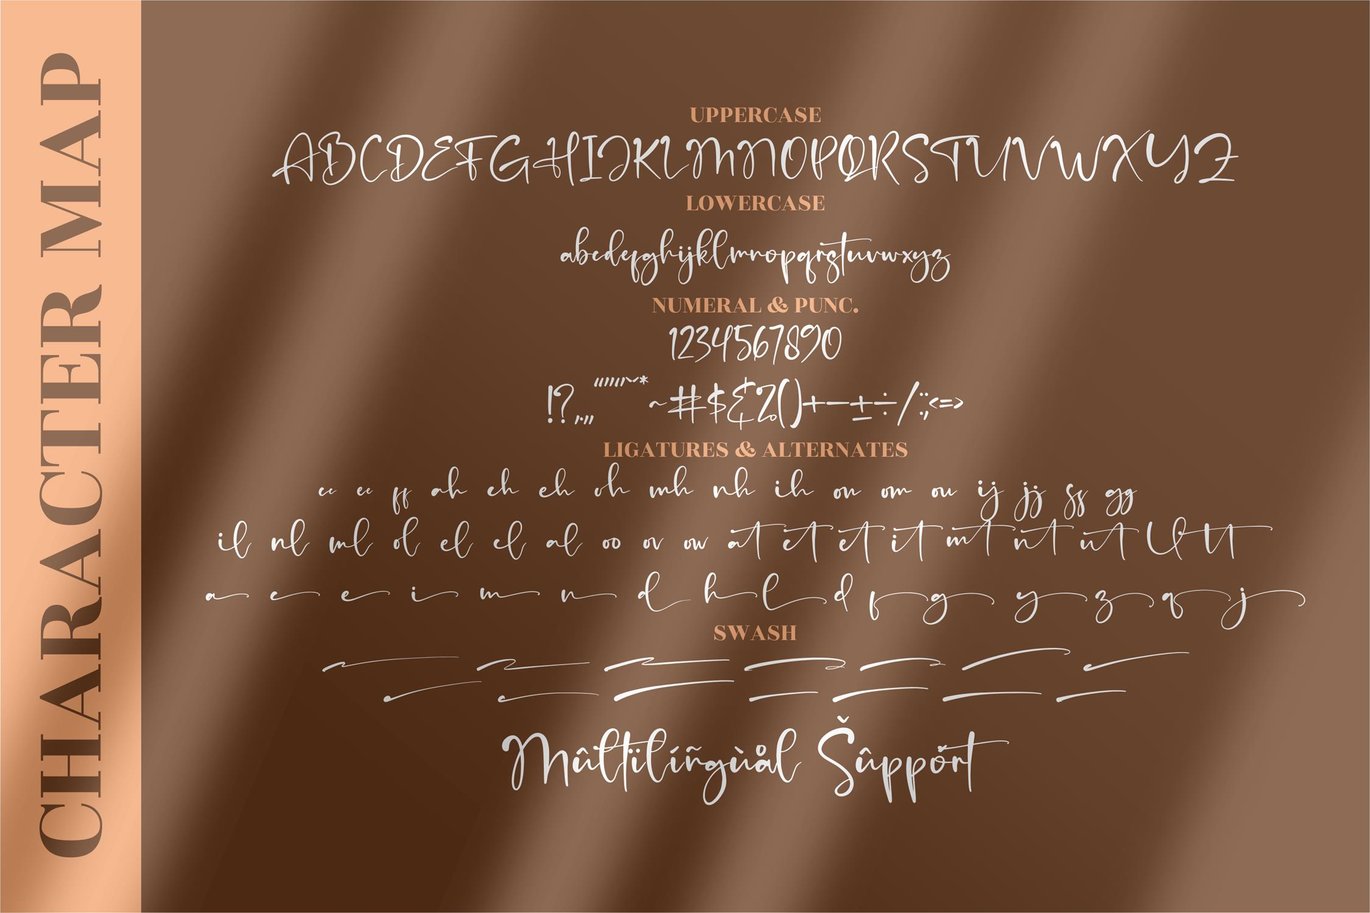 CHARACTER MAP
UPPERCASE
ABCDEFGHIJKLMNOPQRSTUVWXYZ
LOWERCASE
abcdefghijklmnopqrstuvwxyz
NUMERAL & PUNC.
1234567890
~#$&%()+−±÷/:;<=>
LIGATURES & ALTERNATES
ah eh eh oh mh nh ih on om ou ij jj gg
il nl ml ol el el al oo ov ow at et et it mt nt ut lt tt
a e e i m n d h l d f g y z q j
SWASH
Mûltïlíñgùål Šûppórt